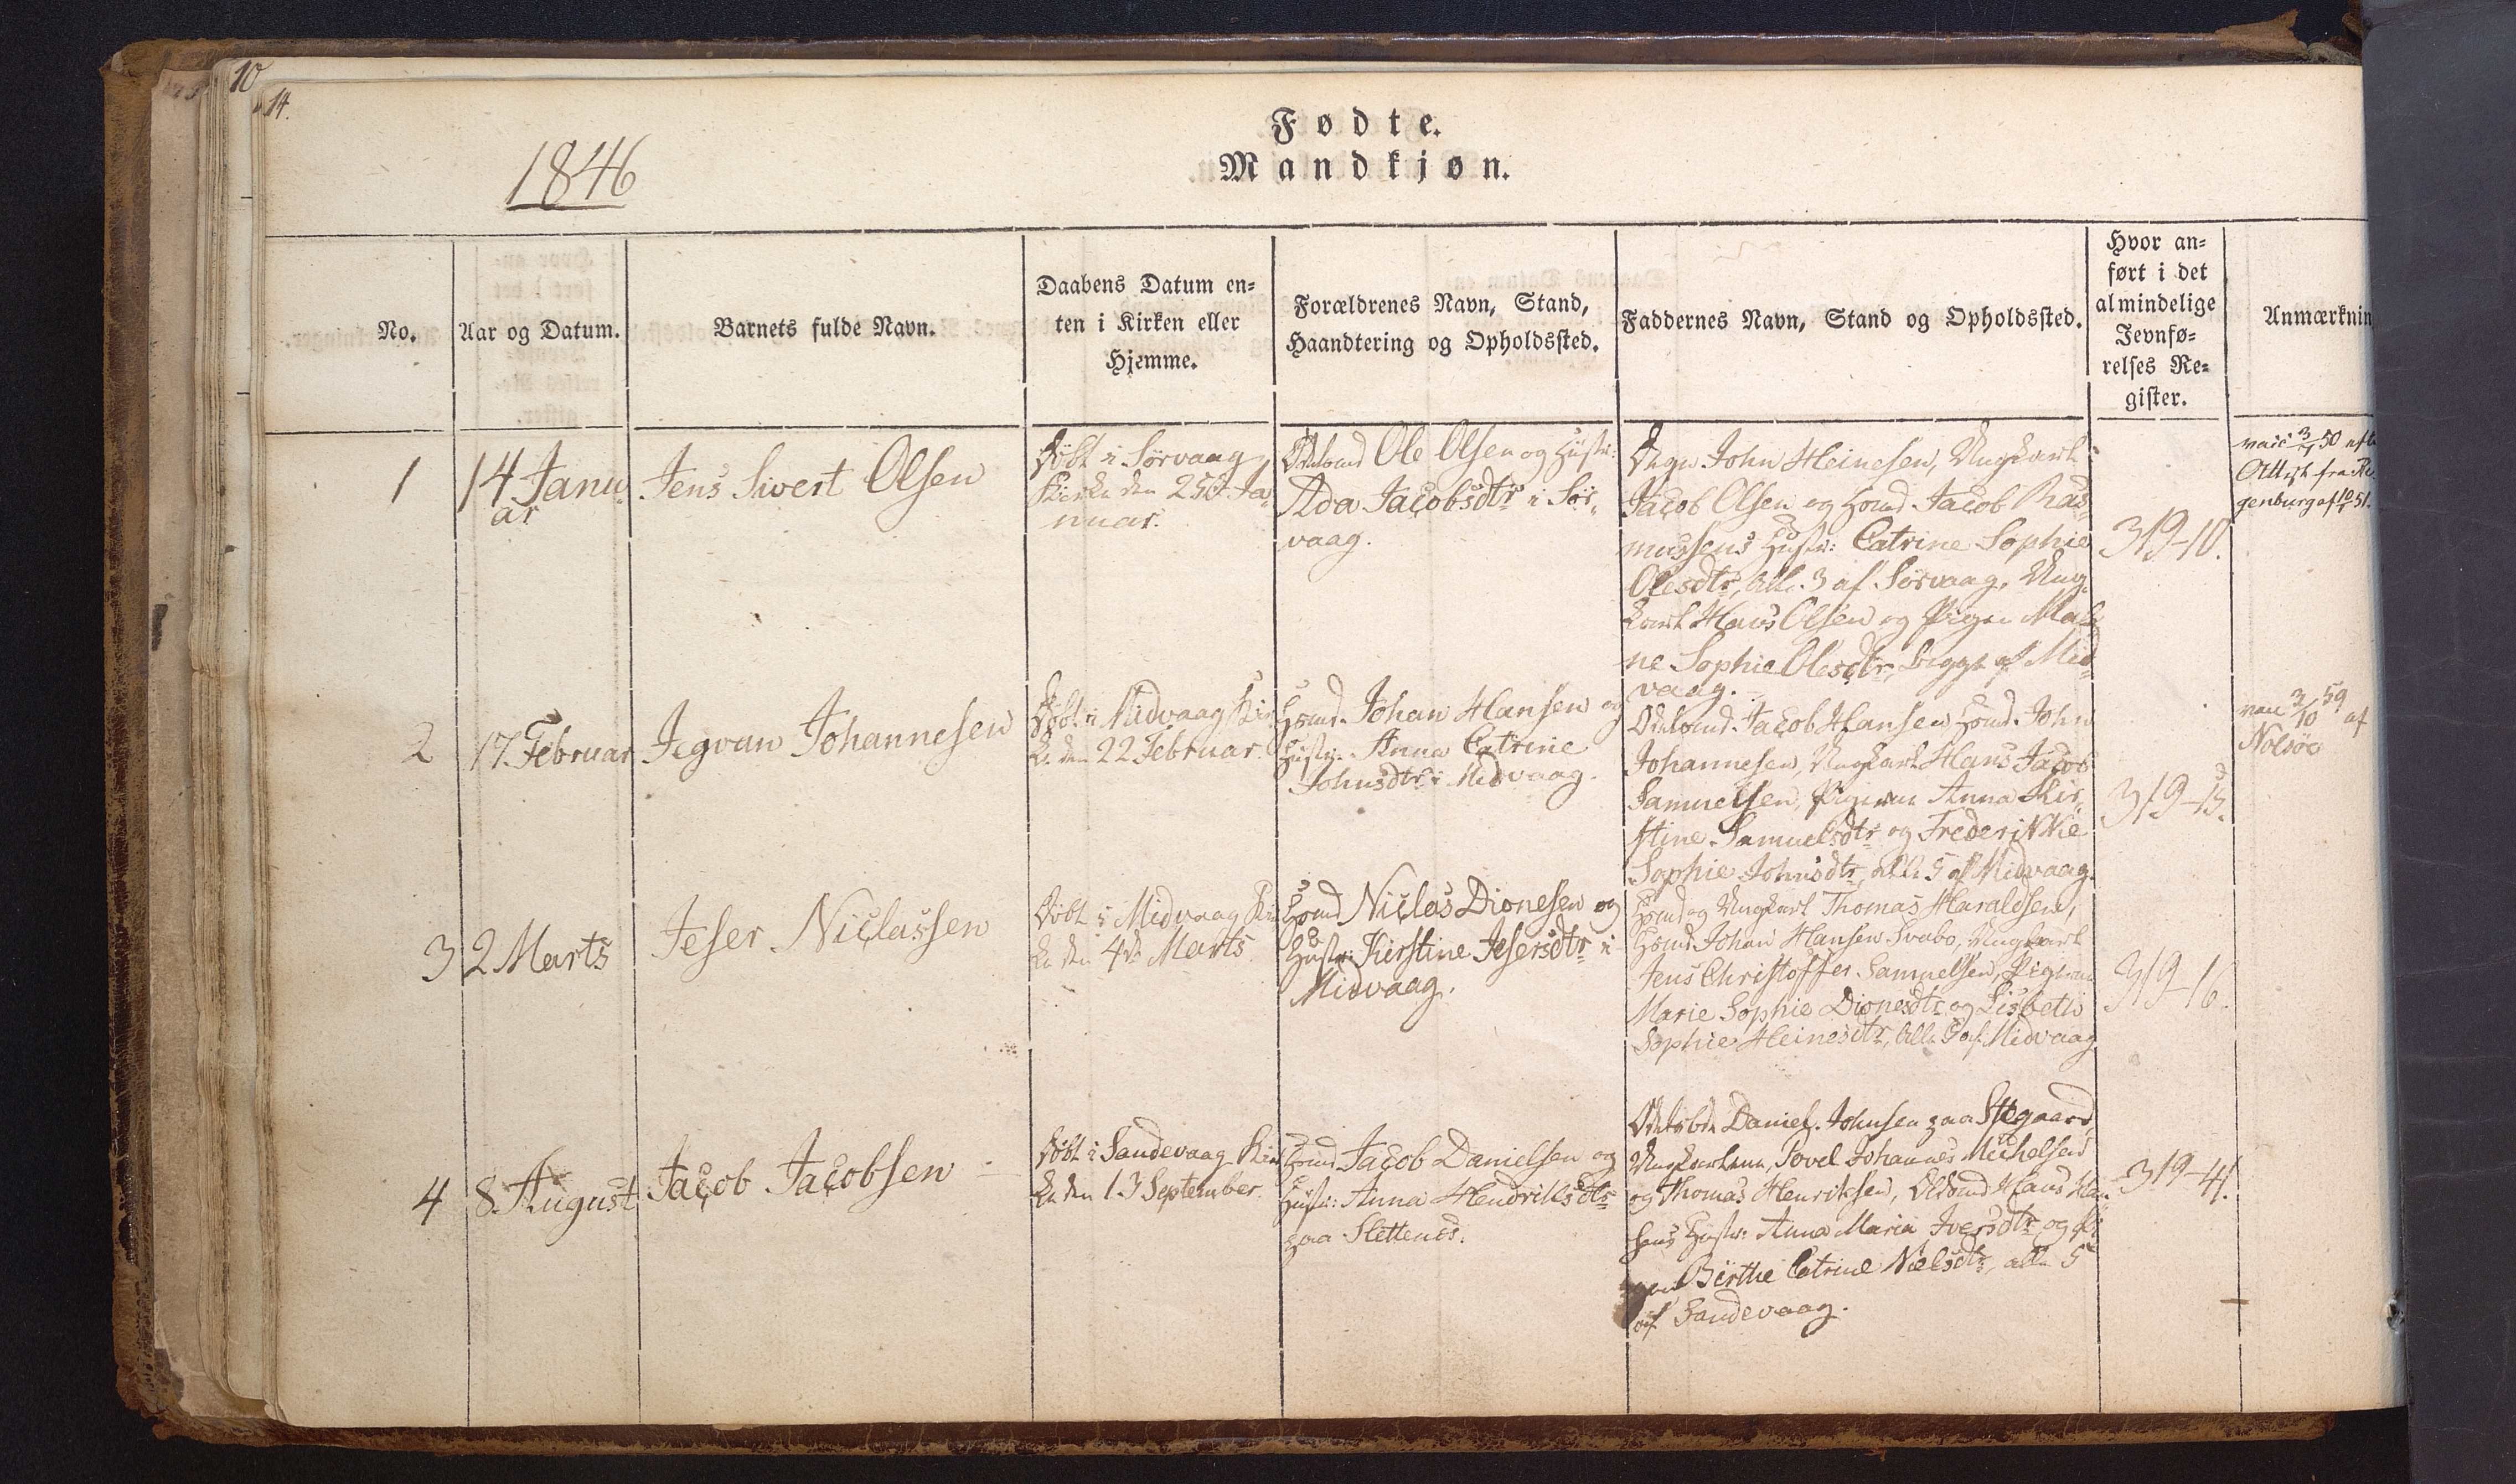 10
14.
Fødte.
Mandkjøn.
1846
No.
Aar og Datum.
Barnets fulde Navn.
Daabens Datum en-
ten i Kirken eller
Hjemme.
Forældrenes Navn, Stand,
Haandtering og Opholdssted.
Faddernes Navn, Stand og Opholdssted.
Hvor an-
ført i det
almindelige
Jevnfø-
relses Re-
gister.
Anmærknin
1
14 Janu-
ar
Jens Sivert Olsen
Döbt i Sörvaag
Kirke den 25de Ja-
nuar.
Ole Olsen og Hustr:
Ada Jacobsdtr i Sör-
vaag.
John Heinesen, Ungkarl
Jacob Olsen og Hmd Jacob Ras-
mussens Hustr: Catrine Sophie
Olesdtr, alle 3 af Sörvaag, Ung-
karl Hans Olsen og Pigen Male-
ne Sophie Olesdtr, begge af Mid-
vaag.
319-10.
vacc 3/7 50 eft
Attest fra Re
genburg af 10/7 51.
2
17. Februar
Jegvan Johannesen
Döbt i Midvaag Kir
ke den 22 Februar
Johan Hansen og
Hustr. Anna Catrine
Johnsdtr i Midvaag.
Jacob Hansen, John
Johannesen, Ungkarl Hans Jacob
Samuelsen, Pigerne Anna Kir-
stine Samuelsdtr og Frederikke
Sophie Johnsdtr, alle 5 af Midvaag.
319-15.
vacc 3/10 59 af
Nolsöe
3
2 Marts
Jeser Niclassen
Döbt i Midvaag Kir
ke den 4de Marts.
Niclas Dionesen og
Hustr: Kirstine Jesersdtr i
Midvaag.
og Ungkarl Thomas Haraldsen,
Johan Hansen Svabo, Ungkarl
Jens Christoffer Samuelsen, Pigerne
Marie Sophie Dionesdtr og Lisbeth
Sophie Heinesdtr, alle 5 af Midvaag
319-16.
4
8. August
Jacob Jacobsen
Döbt i Sandevaag Kir
ke den 13 September.
Jacob Danielsen og
Hustr: Anna Hendriksdtr
paa Slettenes.
Daniel Johnsen paa Stegaard,
Ungkarlene, Povel Johannes Michelsen
og Thomas Henriksen, Hans Han-
sens Hustr: Anna Maria Iversdtr og Pi-
gen Birthe Catrine Nielsdtr, alle 5
af Sandevaag.
319-41.